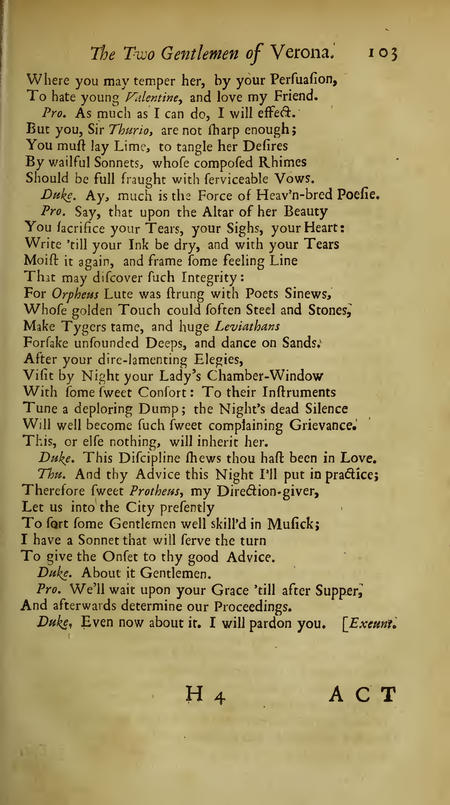 The Two Gentlemen of Verona. 103
Where you may temper her, by your Perſuaſion,
To hate young Valentine, and love my Friend.
Pro. As much as I can do, I will effect.
But you, Sir Thurio, are not ſharp enough;
You muſt lay Lime, to tangle her Deſires
By wailful Sonnets, whoſe compoſed Rhimes
Should be full fraught with ſerviceable Vows.
Duke. Ay, much is the Force of Heav'n-bred Poeſie.
Pro. Say, that upon the Altar of her Beauty
You ſacrifice your Tears, your Sighs, your Heart:
Write 'till your Ink be dry, and with your Tears
Moiſt it again, and frame ſome feeling Line
That may diſcover ſuch Integrity:
For Orpheus Lute was ſtrung with Poets Sinews,
Whoſe golden Touch could ſoften Steel and Stones,
Make Tygers tame, and huge Leviathans
Forſake unſounded Deeps, and dance on Sands.
After your dire-lamenting Elegies,
Viſit by Night your Lady's Chamber-Window
With ſome ſweet Conſort: To their Inſtruments
Tune a deploring Dump; the Night's dead Silence
Will well become ſuch ſweet complaining Grievance.
This, or elſe nothing, will inherit her.
Duke. This Diſcipline ſhews thou haſt been in Love.
Thu. And thy Advice this Night I'll put in practice;
Therefore ſweet Protheus, my Direction-giver,
Let us into the City preſently
To ſort ſome Gentlemen well skill'd in Muſick;
I have a Sonnet that will ſerve the turn
To give the Onſet to thy good Advice.
Duke. About it Gentlemen.
Pro. We'll wait upon your Grace 'till after Supper,
And afterwards determine our Proceedings.
Duke, Even now about it. I will pardon you. [Exeunt.
H 4 ACT